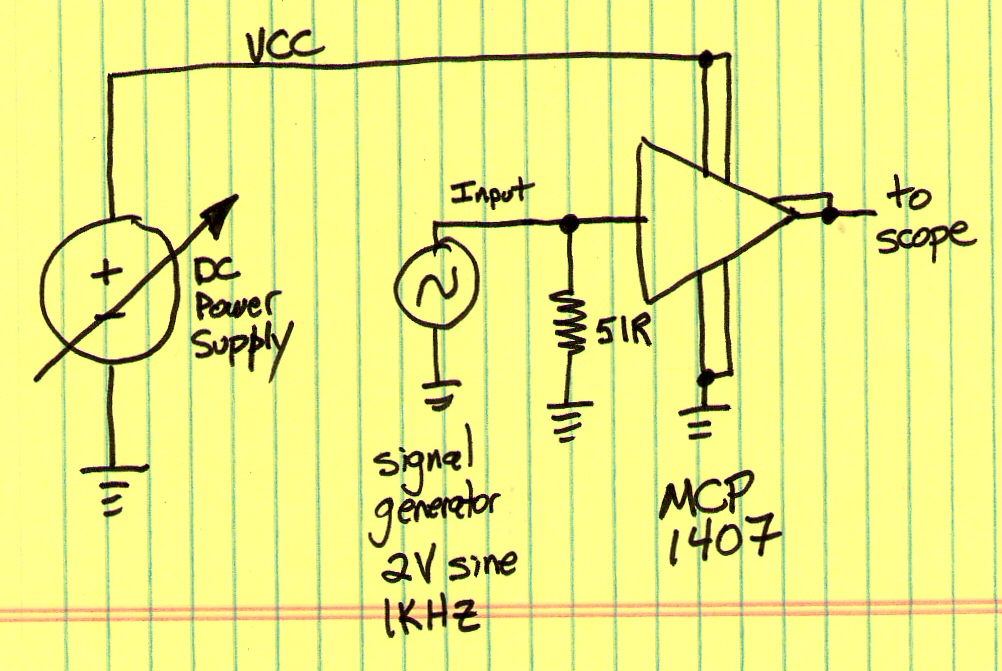 VCC
Input
to
scope
+
-
DC
Power
Supply
51R
signal
generator
2V sine
1KHz
MCP
1407